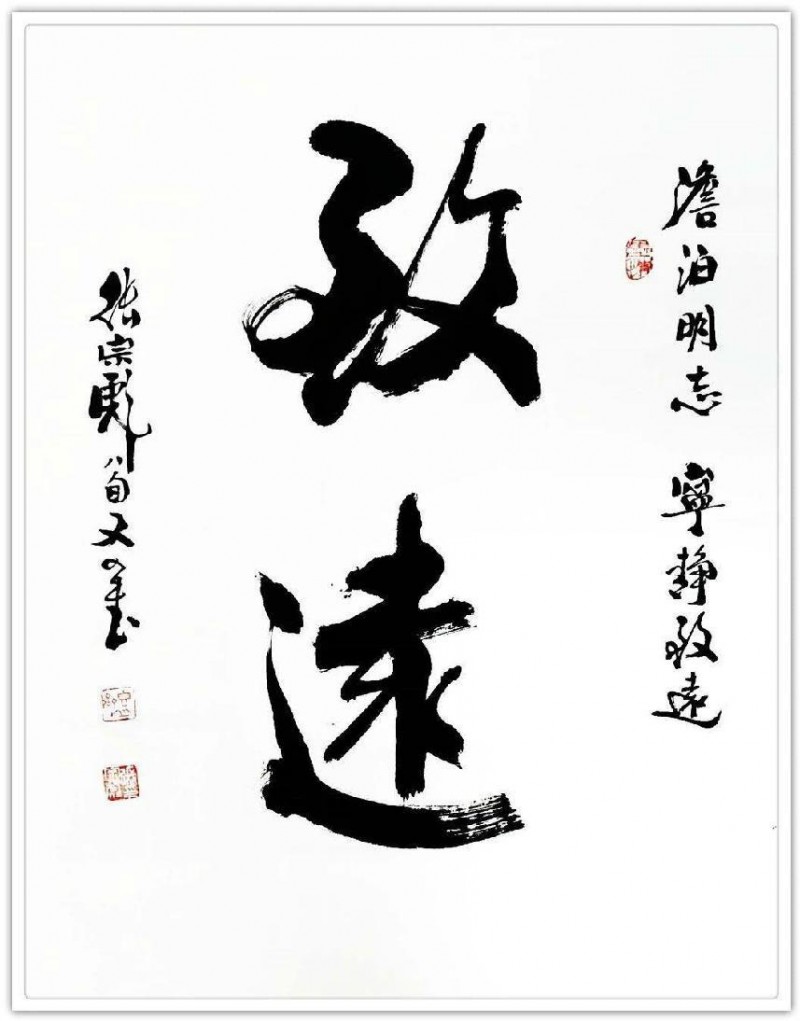 澹泊明志 寧静致遠
致遠
張宗彪八旬又四書